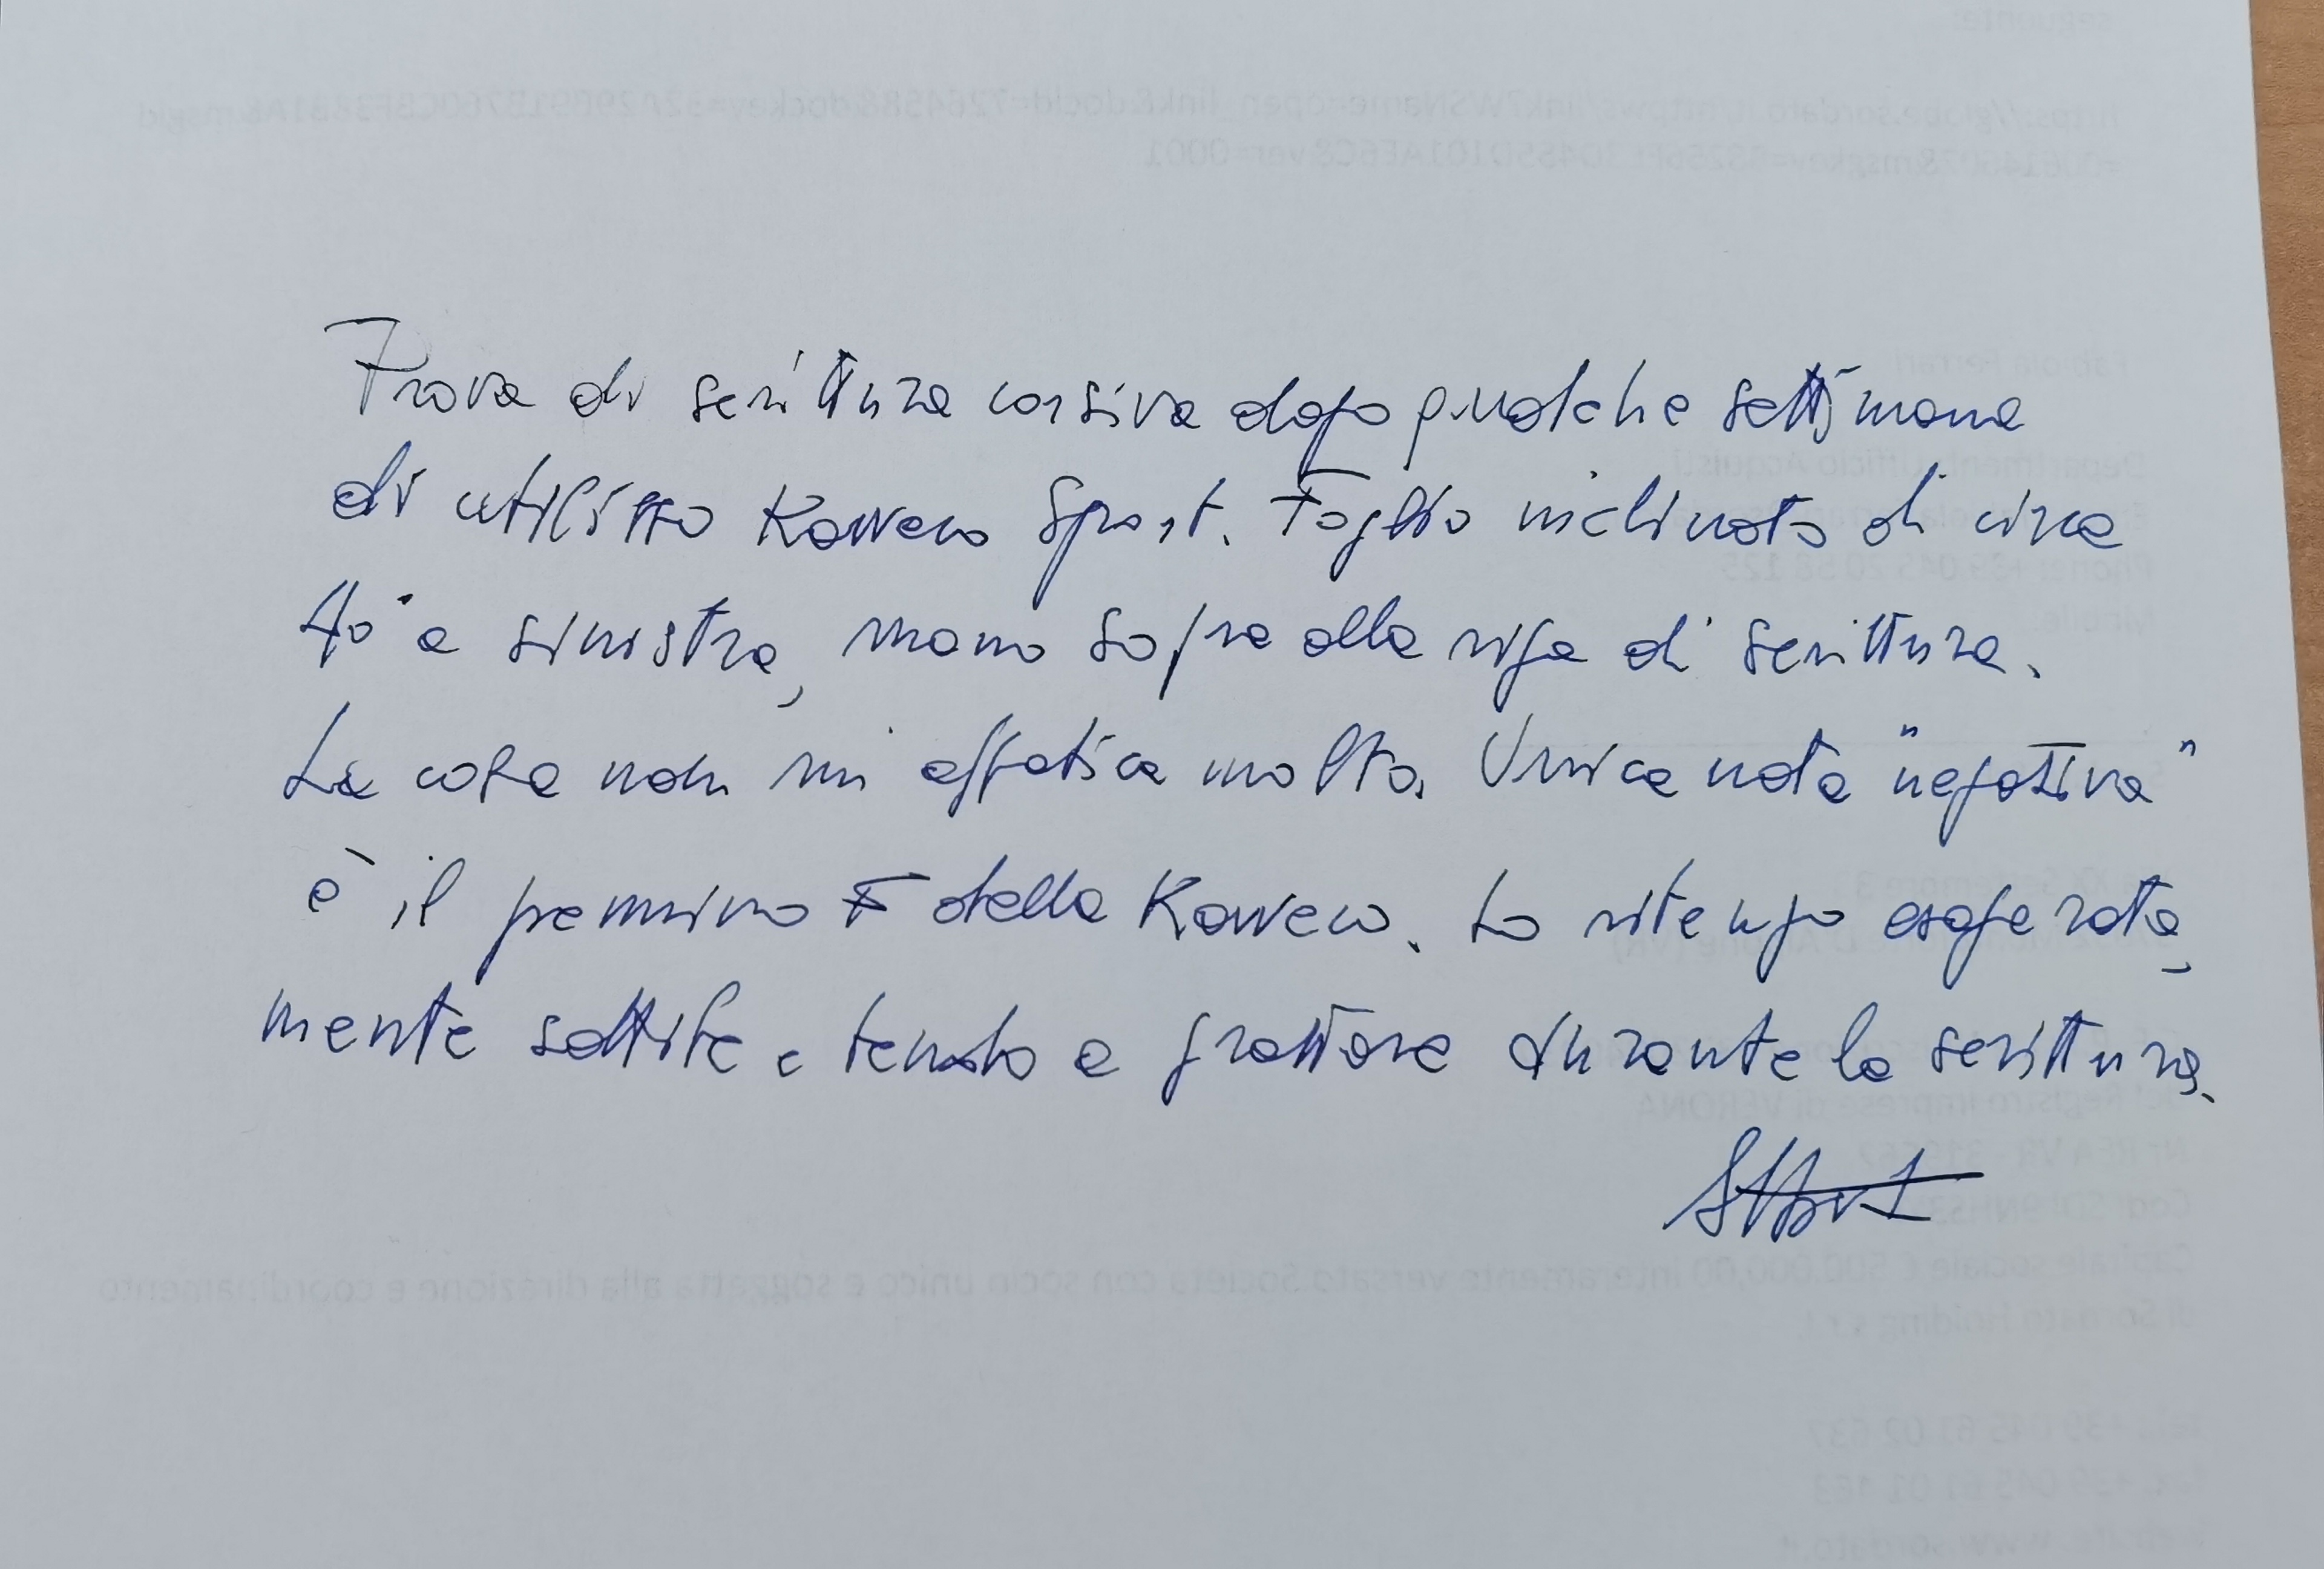 Prova di scrittura corsiva dopo qualche settimana
di utilizzo Kaweco Sport. Foglio inclinato di circa
40° a sinistra, mano sopra alla riga di scrittura.
La cosa non mi affatica molto. Unica nota "negativa"
è il pennino F della Kaweco. Lo ritengo esagerata,
mente sottile e tendo a grattare durante la scrittura.